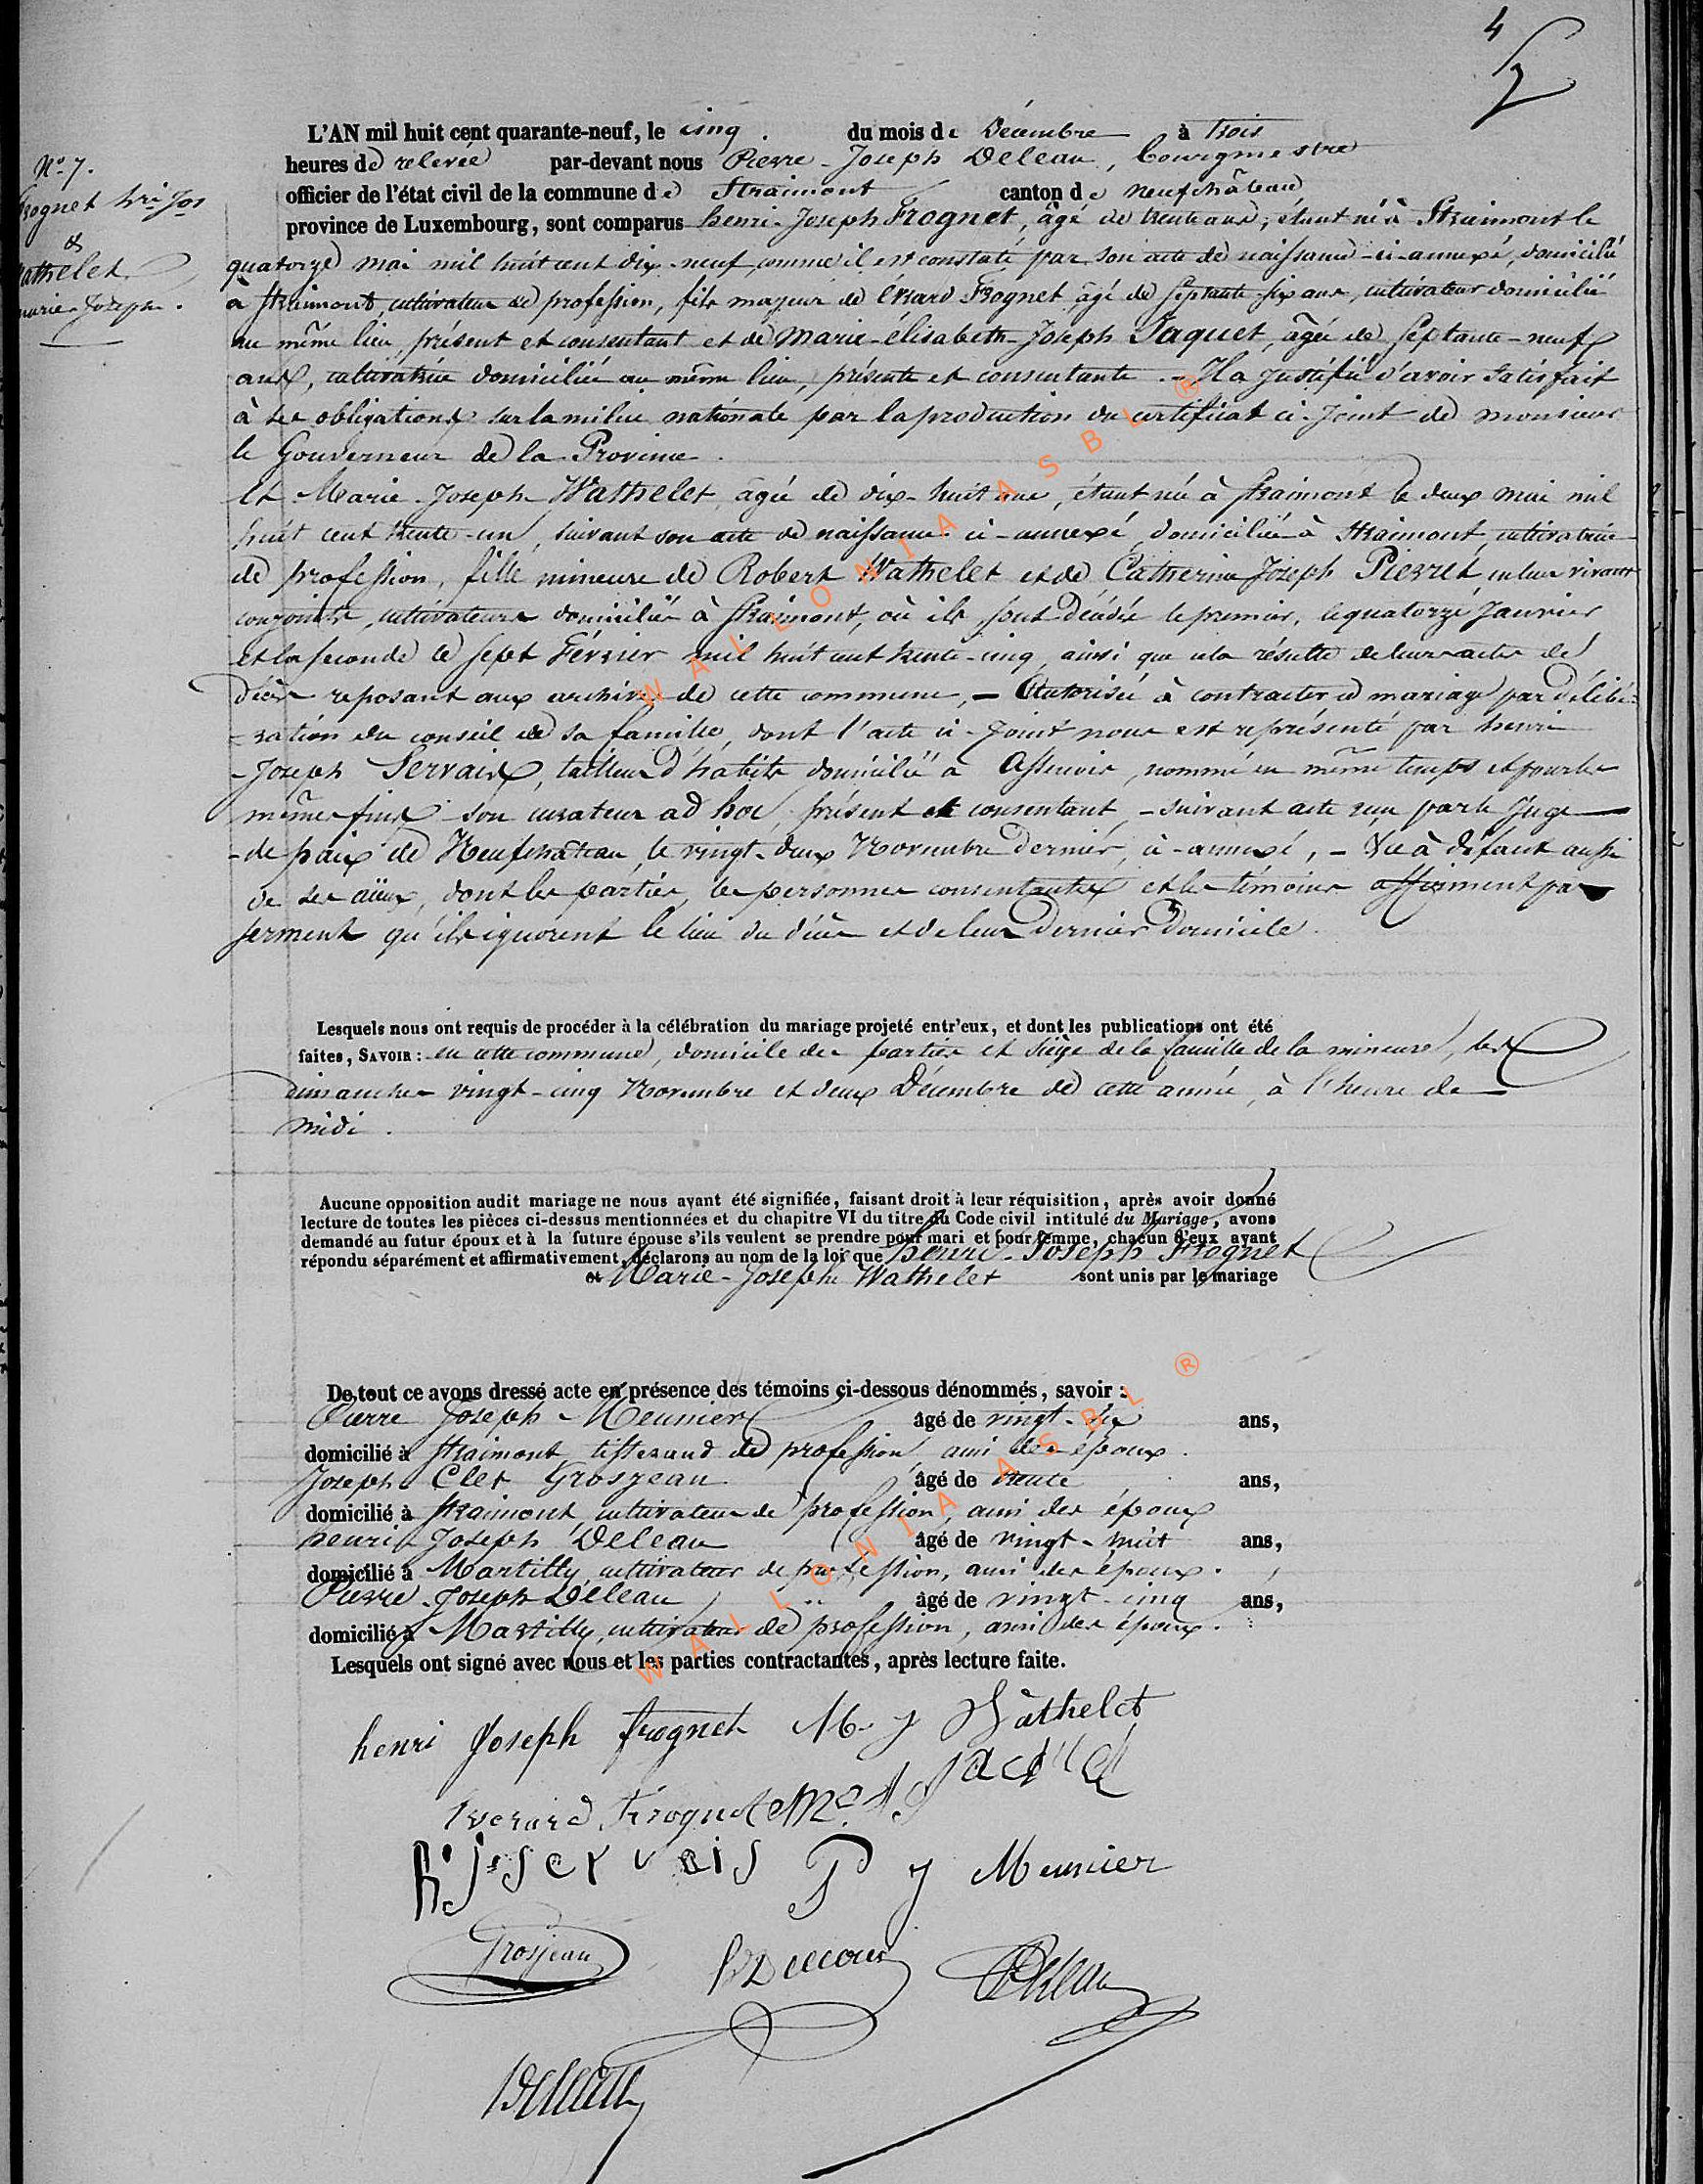 4
N° 7.
Frognet hri Jos
&
Wathelet
marie-Joseph.
L'AN mil huit cent quarante-neuf, le cinq du mois de Décembre à trois
heures de relevée par-devant nous Pierre-Joseph Deleau, bourgmestre
officier de l'état civil de la commune de Straimont canton de neufchâteau
province de Luxembourg, sont comparus henri-Joseph Frognet, âgé de trente ans, étant né à Straimont le
quatorze mai mil huit cent dix-neuf, comme il est constaté par son acte de naissance ci-annexé, domicilié
à Straimont, cultivateur de profession, fils majeur de Evrard Frognet, âgé de septante-six ans, cultivateur domicilié
au même lieu, présent et consentant et de Marie-élisabeth-Joseph Jaquet, âgée de septante-neuf
ans, cultivatrice domiciliée au même lieu, présente et consentante. - Il a justifié d'avoir satisfait
à ses obligations sur la milice nationale par la production du certificat ci-joint de monsieur
le Gouverneur de la Province.
Et Marie-Joseph Wathelet, âgée de dix-huit ans, étant née à Straimont le deux mai mil
huit cent trente-un, suivant son acte de naissance ci-annexé, domiciliée à Straimont, cultivatrice
de profession, fille mineure de Robert Wathelet et de Catherine Joseph Pierret en leur vivant
conjoints, cultivateurs domiciliés à Straimont, où ils sont décédés le premier, le quatorze Janvier
et la seconde le sept Février mil huit cent trente-cinq, ainsi que cela résulte de leurs actes de
décès reposant aux archives de cette commune, - Autorisée à contracter ce mariage par délibé-
-ration du conseil de sa famille, dont l'acte ci-joint nous est représenté par henri
-Joseph Servais, tailleur d'habits domicilié à Assenois, nommé en même temps et pour les
mêmes fins son curateur ad hoc, présent et consentant, - suivant acte reçu par le Juge
-de paix de Neufchâteau, le vingt-deux Novembre dernier, ci-annexé, - Vu à défaut aussi
de ses aïeux, dont les parties, les personnes consentantes et les témoins affirment par
serment qu'ils ignorent le lieu du décès et de leur dernier domicile.
Lesquels nous ont requis de procéder à la célébration du mariage projeté entr'eux, et dont les publications ont été
faites, SAVOIR : en cette commune, domicile des parties et siège de la famille de la mineure, les
dimanches vingt-cinq Novembre et deux Décembre de cette année, à l'heure de
midi.
Aucune opposition audit mariage ne nous ayant été signifiée, faisant droit à leur réquisition, après avoir donné
lecture de toutes les pièces ci-dessus mentionnées et du chapitre VI du titre du Code civil intitulé du Mariage, avons
demandé au futur époux et à la future épouse s'ils veulent se prendre pour mari et pour femme, chacun d'eux ayant
répondu séparément et affirmativement, déclarons au nom de la loi que henri-Joseph Frognet
et Marie-Joseph Wathelet sont unis par le mariage
De tout ce avons dressé acte en présence des témoins ci-dessous dénommés, savoir :
Pierre Joseph Meunier âgé de vingt-six ans,
domicilié à Straimont tisserand de profession, ami des époux.
Joseph Clet Grosjean âgé de trente ans,
domicilié à Straimont, cultivateur de profession, ami des époux
henri Joseph Deleau âgé de vingt-huit ans,
domicilié à Martilly, cultivateur de profession, ami des époux.
Pierre-Joseph Deleau âgé de vingt-cinq ans,
domicilié à Martilly, cultivateur de profession, ami des époux.
Lesquels ont signé avec nous et les parties contractantes, après lecture faite.
henri Joseph frognet M. J Wathelet
Everard Frognet M. E J Jacquet
h. j. servais P J Meunier
Grosjean Deleau
Deleau
WALLONIA ASBL ®
WALLONIA ASBL ®